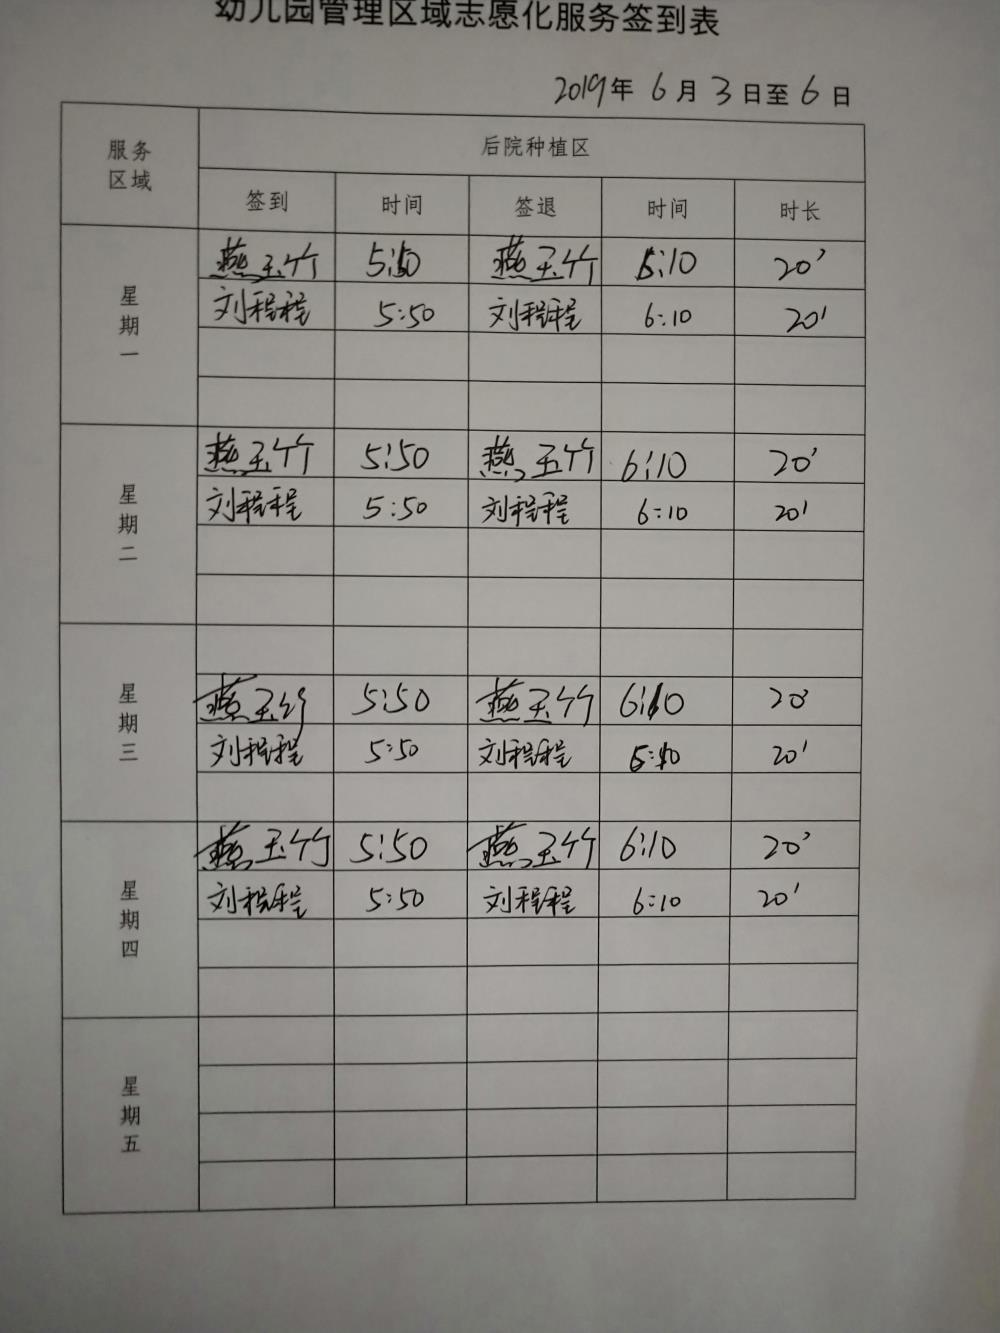 幼儿园管理区域志愿化服务签到表
2019年 6月 3日至 6日
服务区域 后院种植区
签到 时间 签退 时间 时长
星期一
燕玉竹 5:50 燕玉竹 6:10 20'
刘程程 5:50 刘程程 6:10 20'
星期二
燕玉竹 5:50 燕玉竹 6:10 20'
刘程程 5:50 刘程程 6:10 20'
星期三
燕玉竹 5:50 燕玉竹 6:10 20'
刘程程 5:50 刘程程 6:10 20'
星期四
燕玉竹 5:50 燕玉竹 6:10 20'
刘程程 5:50 刘程程 6:10 20'
星期五